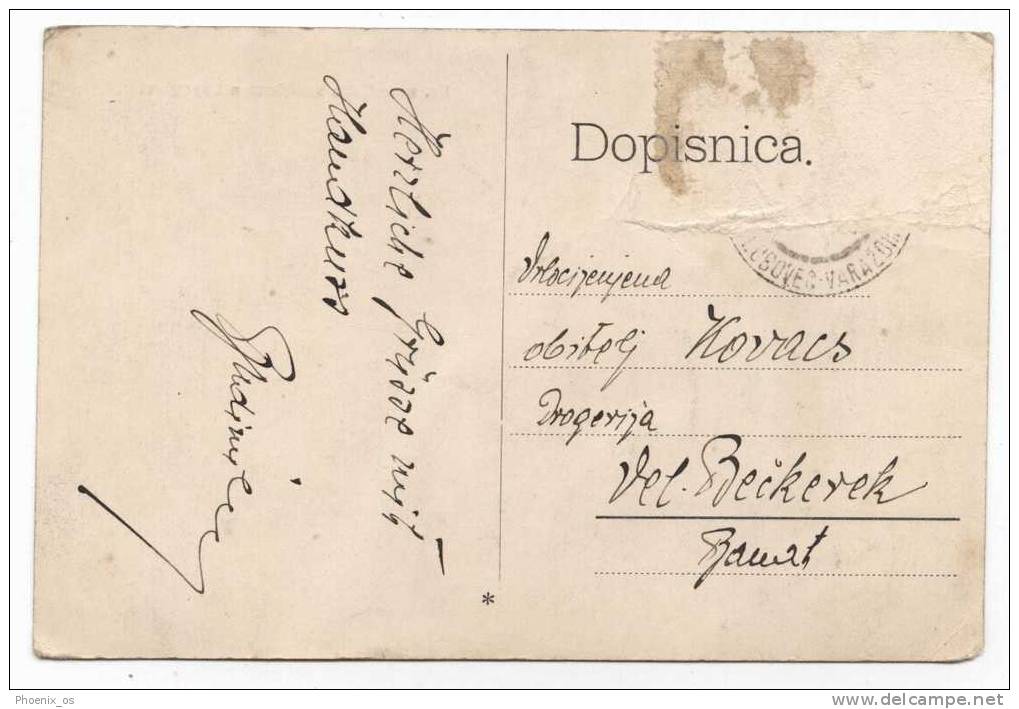 Dopisnica.
LUBOVEC-VARAŽDIN
Herzliche Grüsse mit
Handkuss
Velecijenjena
obitelj Kovacs
Drogerija
Vel. Bečkerek
Banat
*
Phoenix_os
www.delcampe.net